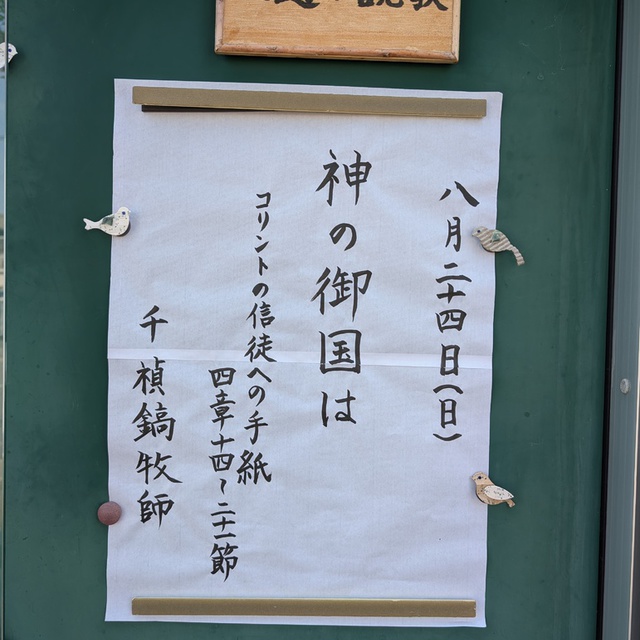 説教
八月二十四日(日)
神の御国は
コリントの信徒への手紙
四章十四~二十一節
千禎鎬牧師